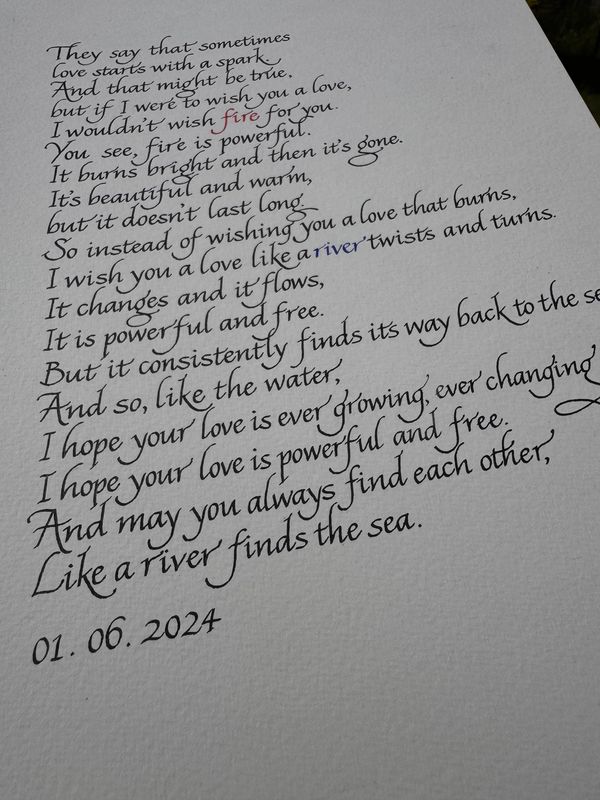 They say that sometimes
love starts with a spark
And that might be true,
but if I were to wish you a love,
I wouldn't wish fire for you.
You see, fire is powerful.
It burns bright and then it's gone.
It's beautiful and warm,
but it doesn't last long.
So instead of wishing you a love that burns,
I wish you a love like a river twists and turns.
It changes and it flows,
It is powerful and free.
But it consistently finds its way back to the
And so, like the water,
I hope your love is ever growing, ever changing
I hope your love is powerful and free.
And may you always find each other,
Like a river finds the sea.
01. 06. 2024